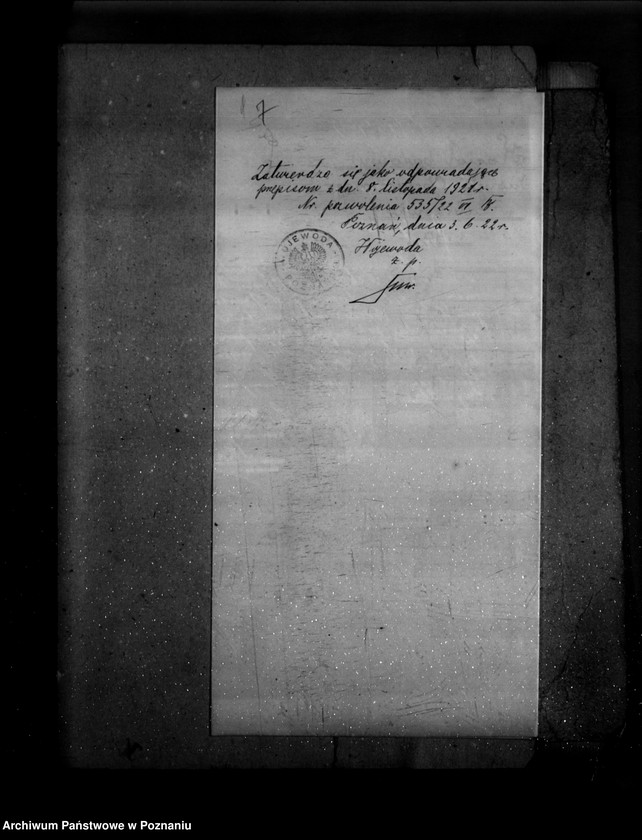 7
Zatwierdza się jako odpowiadające
przepisom z dn. 8. listopada 1921.r.
Nr. pozwolenia 535/22 VI
Poznań, dnia 3. 6. 22 r.
Wojewoda
z. p.
WOJEWODA
Archiwum Państwowe w Poznaniu